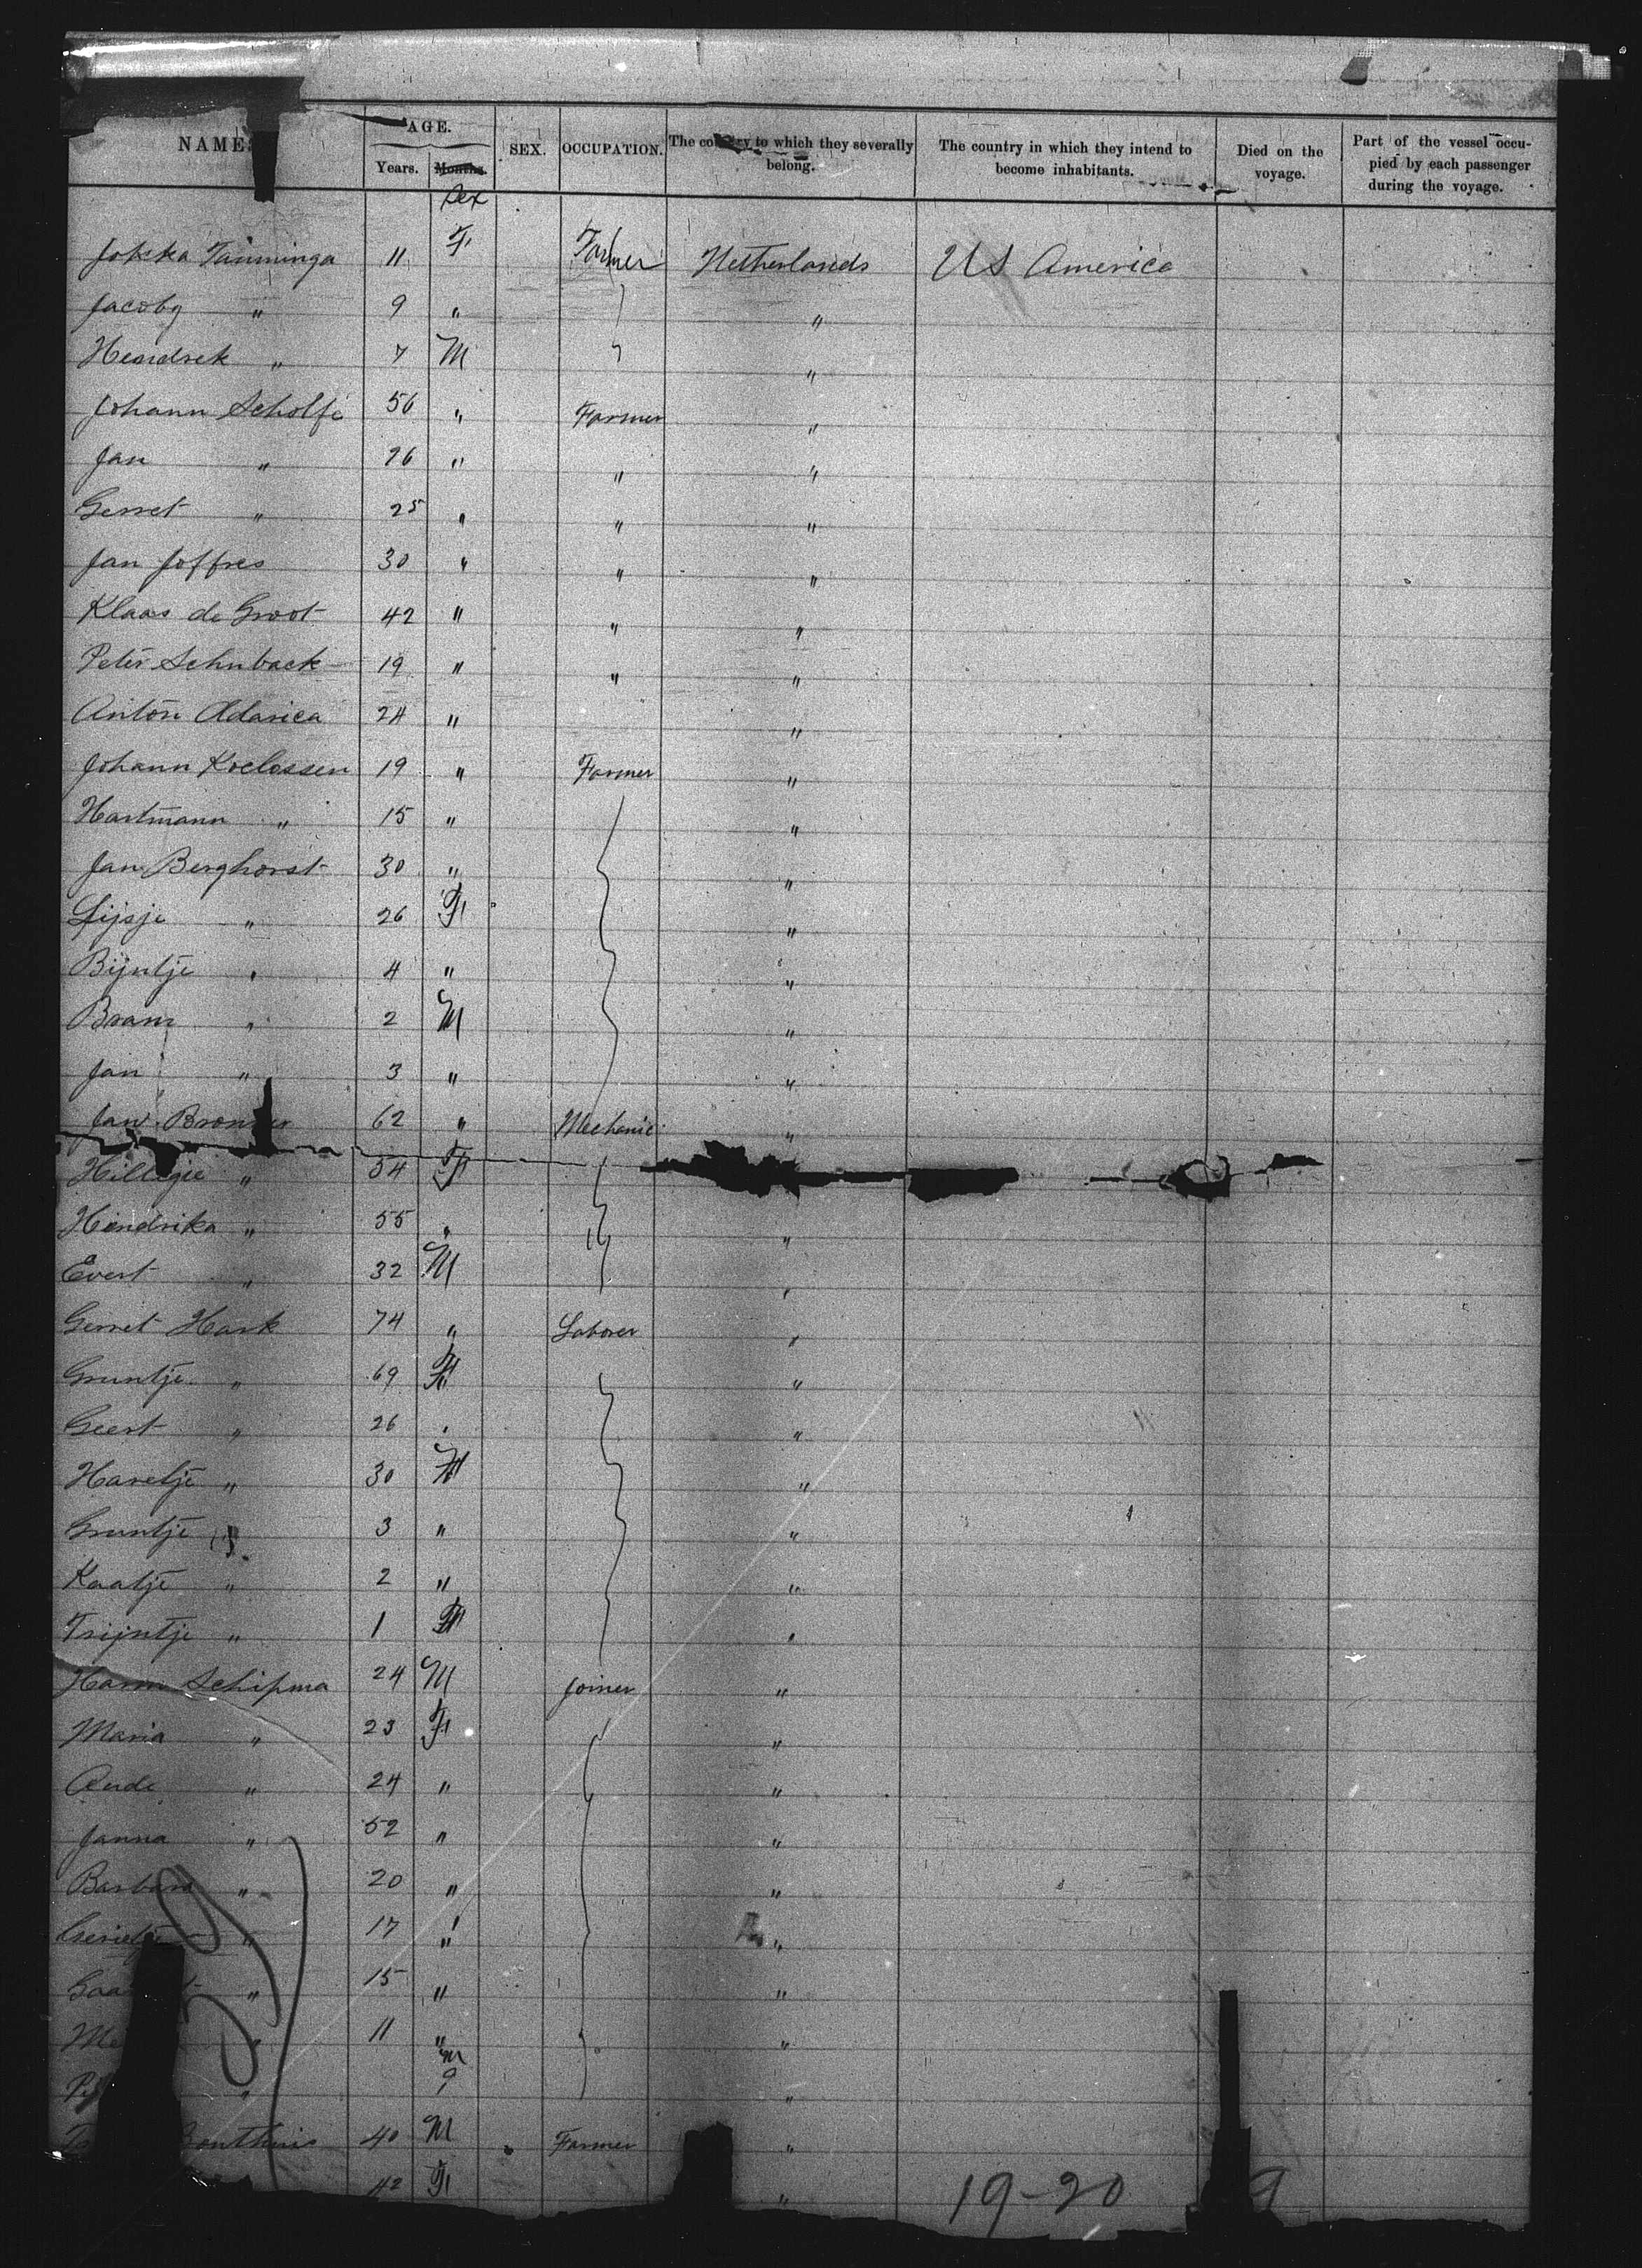 NAMES AGE. SEX. OCCUPATION. The country to which they severally belong. The country in which they intend to become inhabitants. Died on the voyage. Part of the vessel occupied by each passenger during the voyage.
Years. Months.
Sex
Jokka Tamminga 11 F Farmer Netherlands US America
Jacoby " 9 " "
Hendrek " 7 M "
Johann Scholfe 56 " Farmer "
Jan " 26 " " "
Gerret " 25 " " "
Jan Joffres 30 " " "
Klaas de Groot 42 " " "
Peter Schuback 19 " " "
Anton Adarica 24 " "
Johann Roelossen 19 " Farmer "
Hartmann " 15 " "
Jan Berghorst 30 " "
Lijsje " 26 F "
Bijntje " 4 " "
Bram " 2 M "
Jan " 3 " "
Jan 62 " Mechanic "
Hillegie " 54 F
Hendrika " 55 " "
Evert " 32 M "
Gerret Hark 74 " Laborer "
Gruntje " 69 F "
Geert " 26 " "
Haretje " 30 F "
Gruntje " 3 " "
Kaatje " 2 " "
Trijntje " 1 "
Harm Schipma 24 M Joiner "
Maria " 23 F "
Aude " 24 " "
Janna " 52 " "
Barbara " 20 " "
" 17 " "
" 15 " "
" 11 " "
" M 9 "
Bonthuis 40 M Farmer "
42 F "
19-20